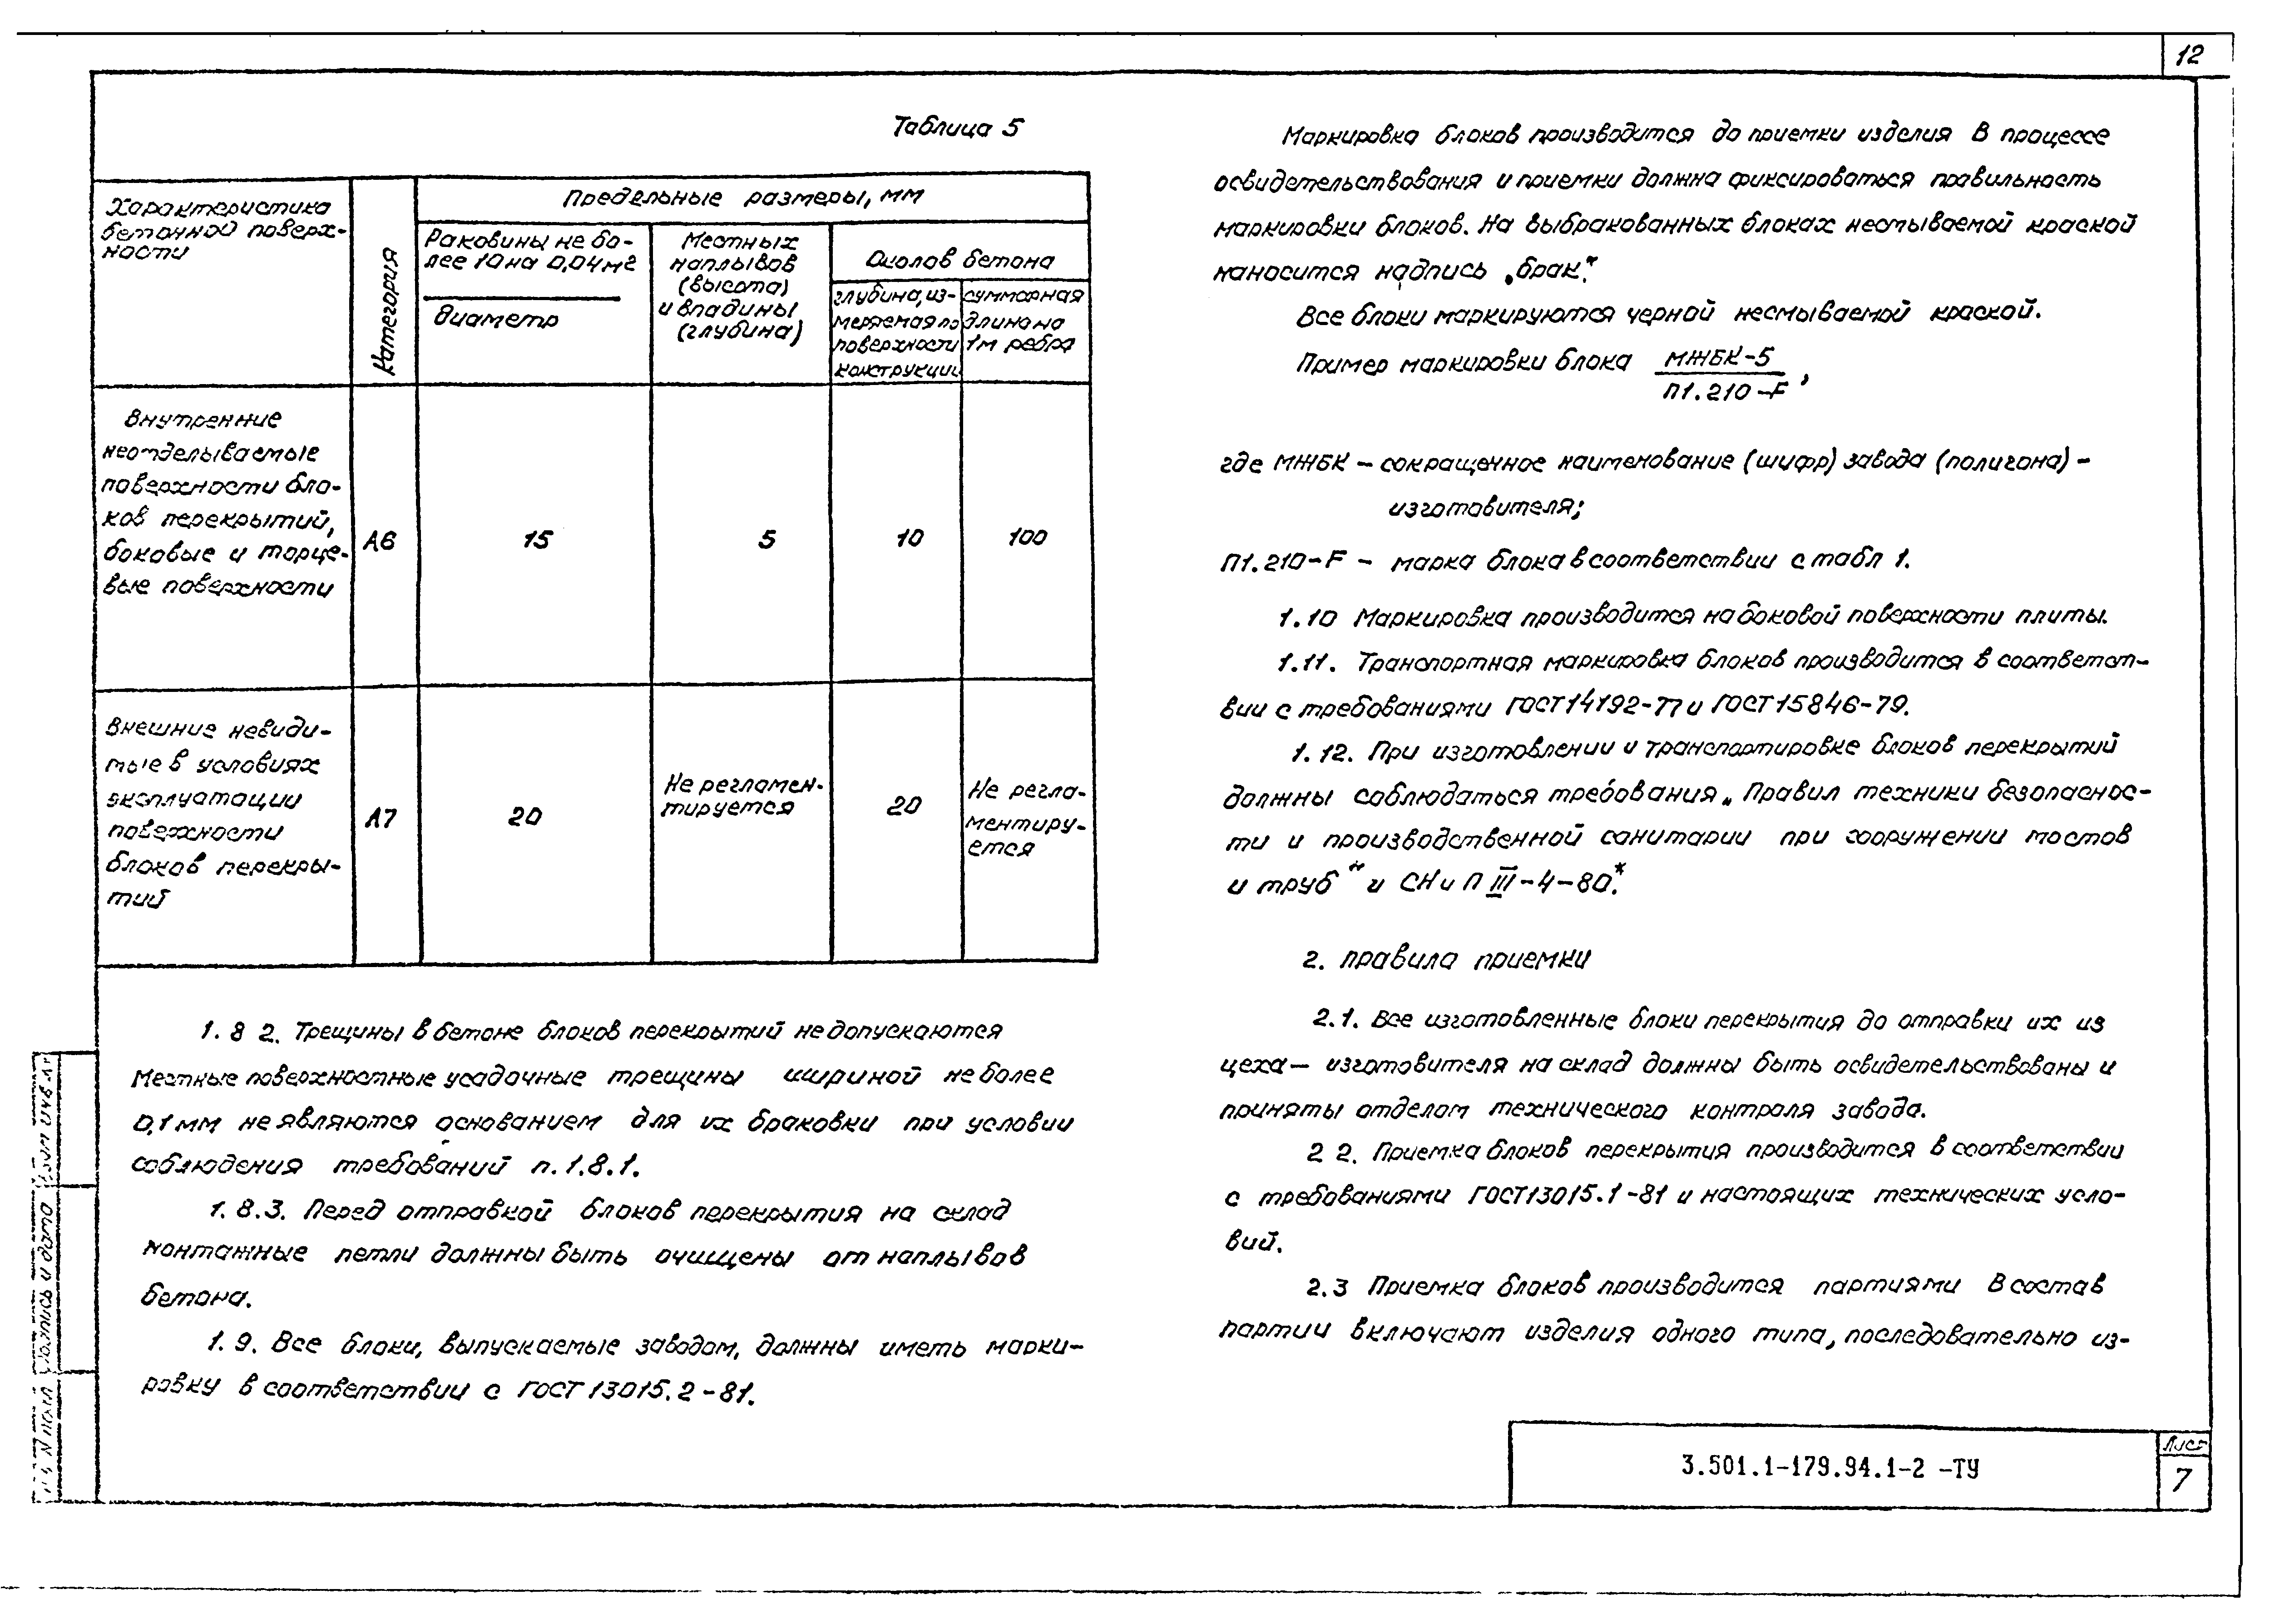 12
Таблица 5
Характеристика
бетонной поверх-
ности
Категория
Предельные размеры, мм
Раковины не бо-
лее 10 на 0,04 м2
Диаметр
Местных
наплывов
(высота)
и впадины
(глубина)
Околов бетона
глубина, из-
меряемая по
поверхности
конструкции
суммарная
длина на
1м ребра
Внутренние
неотделываемые
поверхности бло-
ков перекрытий,
боковые и торце-
вые поверхности
А6
15
5
10
100
Внешние невиди-
мые в условиях
эксплуатации
поверхности
блоков перекры-
тий
А7
20
Не регламен-
тируется
20
Не регла-
ментиру-
ется
1.8 2. Трещины в бетоне блоков перекрытий не допускаются
Местные поверхностные усадочные трещины шириной не более
0,1 мм не являются основанием для их браковки при условии
соблюдения требований п. 1.8.1.
1.8.3. Перед отправкой блоков перекрытия на склад
монтажные петли должны быть очищены от наплывов
бетона.
1.9. Все блоки, выпускаемые заводом, должны иметь марки-
ровку в соответствии с ГОСТ 13015.2-81.
Маркировка блоков производится до приемки изделия В процессе
освидетельствования и приемки должна фиксироваться правильность
маркировки блоков. На выбракованных блоках несмываемой краской
наносится надпись „брак."
Все блоки маркируются черной несмываемой краской.
Пример маркировки блока МЖБК-5
П1.210-F ,
где МЖБК - сокращенное наименование (шифр) завода (полигона) -
изготовителя;
П1.210-F - марка блока в соответствии с табл 1.
1.10 Маркировка производится на боковой поверхности плиты.
1.11. Транспортная маркировка блоков производится в соответст-
вии с требованиями ГОСТ 14192-77 и ГОСТ 15846-79.
1.12. При изготовлении и транспортировке блоков перекрытий
должны соблюдаться требования „Правил техники безопаснос-
ти и производственной санитарии при сооружении мостов
и труб" и СНиП III-4-80.*
2. Правила приемки
2.1. Все изготовленные блоки перекрытия до отправки их из
цеха - изготовителя на склад должны быть освидетельствованы и
приняты отделом технического контроля завода.
2 2. Приемка блоков перекрытия производится в соответствии
с требованиями ГОСТ 13015.1-81 и настоящих технических усло-
вий.
2.3 Приемка блоков производится партиями В состав
партии включают изделия одного типа, последовательно из-
3.501.1-179.94.1-2 -ТУ
Лист
7
Взам инв №
Подпись и дата
№ подл